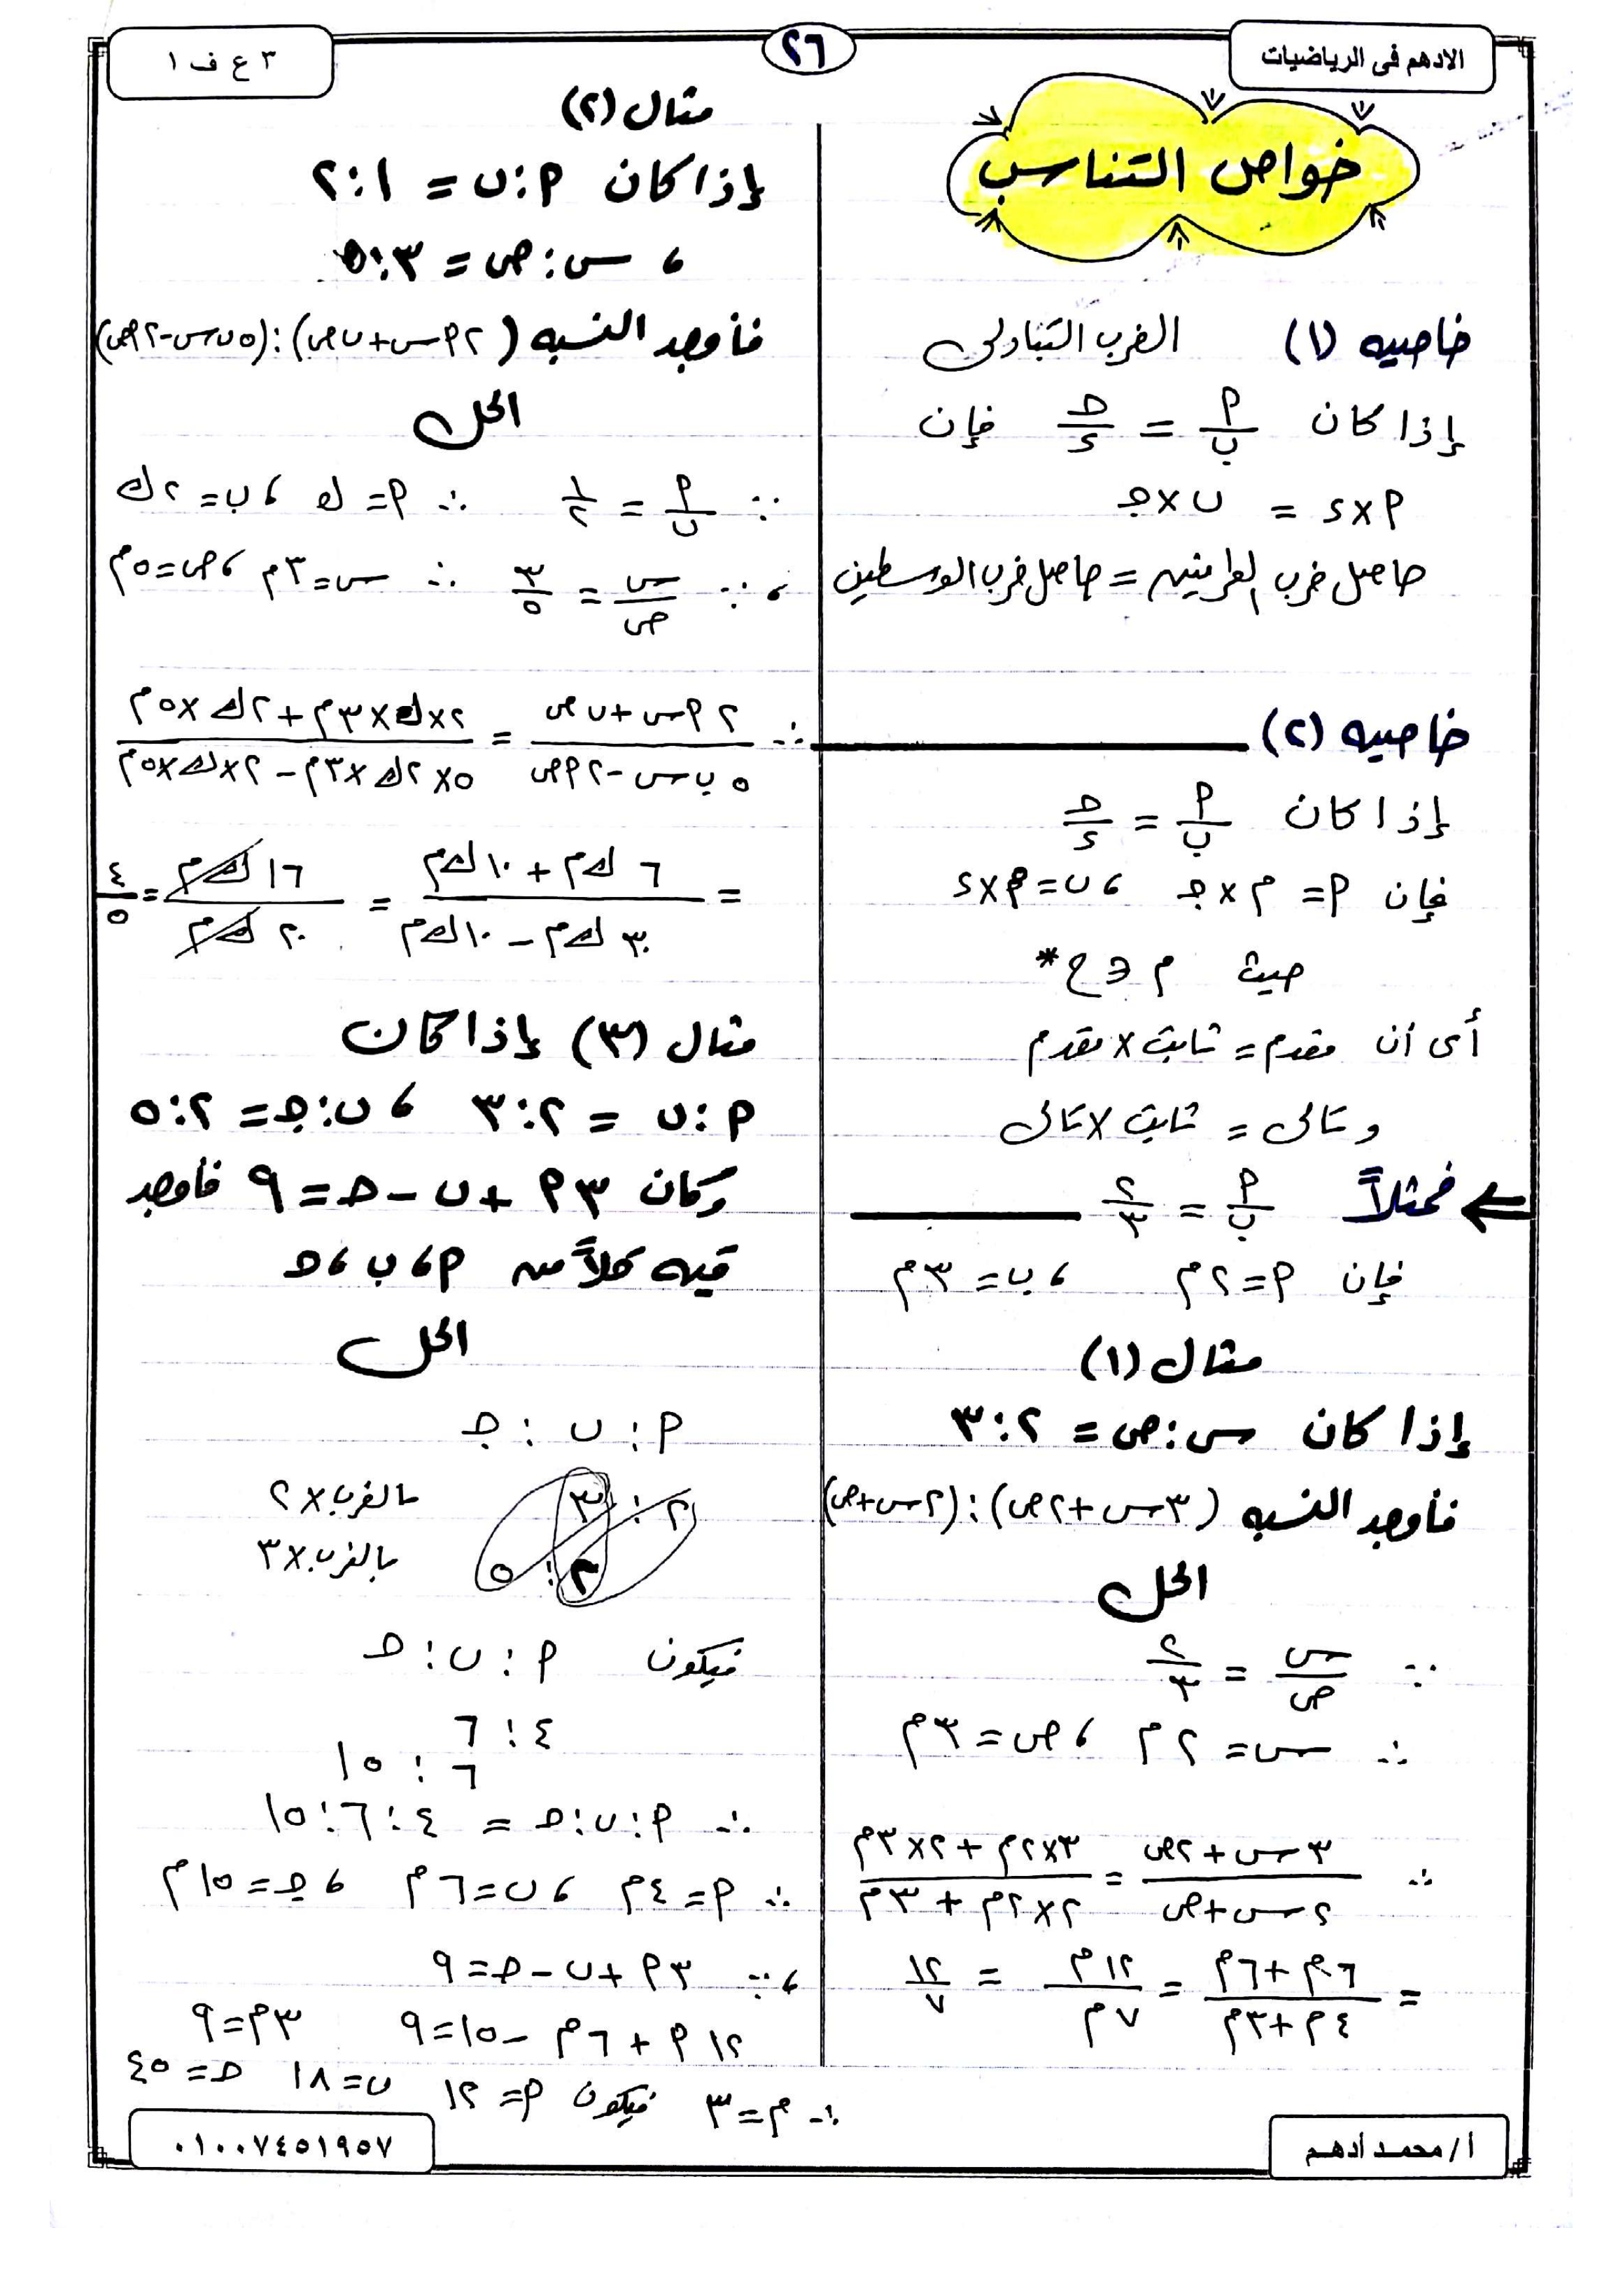 الادهم فى الرياضيات
٢٦
٣ ع ف ١
خواص التناسب
خاصيه (١) الضرب التبادلى
إذا كان أ/ب = ج/د فإن
أ × د = ب × ج
حاصل ضرب الطرفين = حاصل ضرب الوسطين
خاصيه (٢)
إذا كان أ/ب = ج/د
فإن أ = م × ج ، ب = م × د
حيث م ∈ ح*
أى أن مقدم = ثابت × مقدم
وتالى = ثابت × تالى
فمثلاً أ/ب = ٢/٣
فإن أ = ٢م ، ب = ٣م
مثال (١)
إذا كان س : ص = ٢ : ٣
فأوجد النسبه (٣س + ٢ص) : (٢س + ص)
الحل
∵ س/ص = ٢/٣
∴ س = ٢م ، ص = ٣م
∴ (٣س + ٢ص)/(٢س + ص) = (٣×٢م + ٢×٣م)/(٢×٢م + ٣م)
= (٦م + ٦م)/(٤م + ٣م) = ١٢م/٧م = ١٢/٧
مثال (٢)
إذا كان أ : ب = ١ : ٢
، س : ص = ٣ : ٥
فأوجد النسبه (٢أس + ب ص) : (٥ب س - ٢أص)
الحل
∵ أ/ب = ١/٢ ∴ أ = ك ، ب = ٢ك
، ∵ س/ص = ٣/٥ ∴ س = ٣م ، ص = ٥م
∴ (٢أس + ب ص)/(٥ب س - ٢أص) = (٢×ك×٣م + ٢ك×٥م)/(٥×٢ك×٣م - ٢×ك×٥م)
= (٦ك م + ١٠ك م)/(٣٠ك م - ١٠ك م) = ١٦ك م/٢٠ك م = ٤/٥
مثال (٣) إذا كان
أ : ب = ٢ : ٣ ، ب : ج = ٢ : ٥
وكان ٣أ + ب - ج = ٩ فأوجد
قيمه كلاً من أ ، ب ، ج
الحل
أ : ب : ج
٢ : ٣ بالضرب × ٢
٢ : ٥ بالضرب × ٣
فيكون أ : ب : ج
٤ : ٦
٦ : ١٥
∴ أ : ب : ج = ٤ : ٦ : ١٥
∴ أ = ٤م ، ب = ٦م ، ج = ١٥م
، ∵ ٣أ + ب - ج = ٩
١٢م + ٦م - ١٥ = ٩ ٣م = ٩
∴ م = ٣ فيكون أ = ١٢ ب = ١٨ ج = ٤٥
أ / محمد أدهم
٠١٠٠٧٤٥١٩٥٧